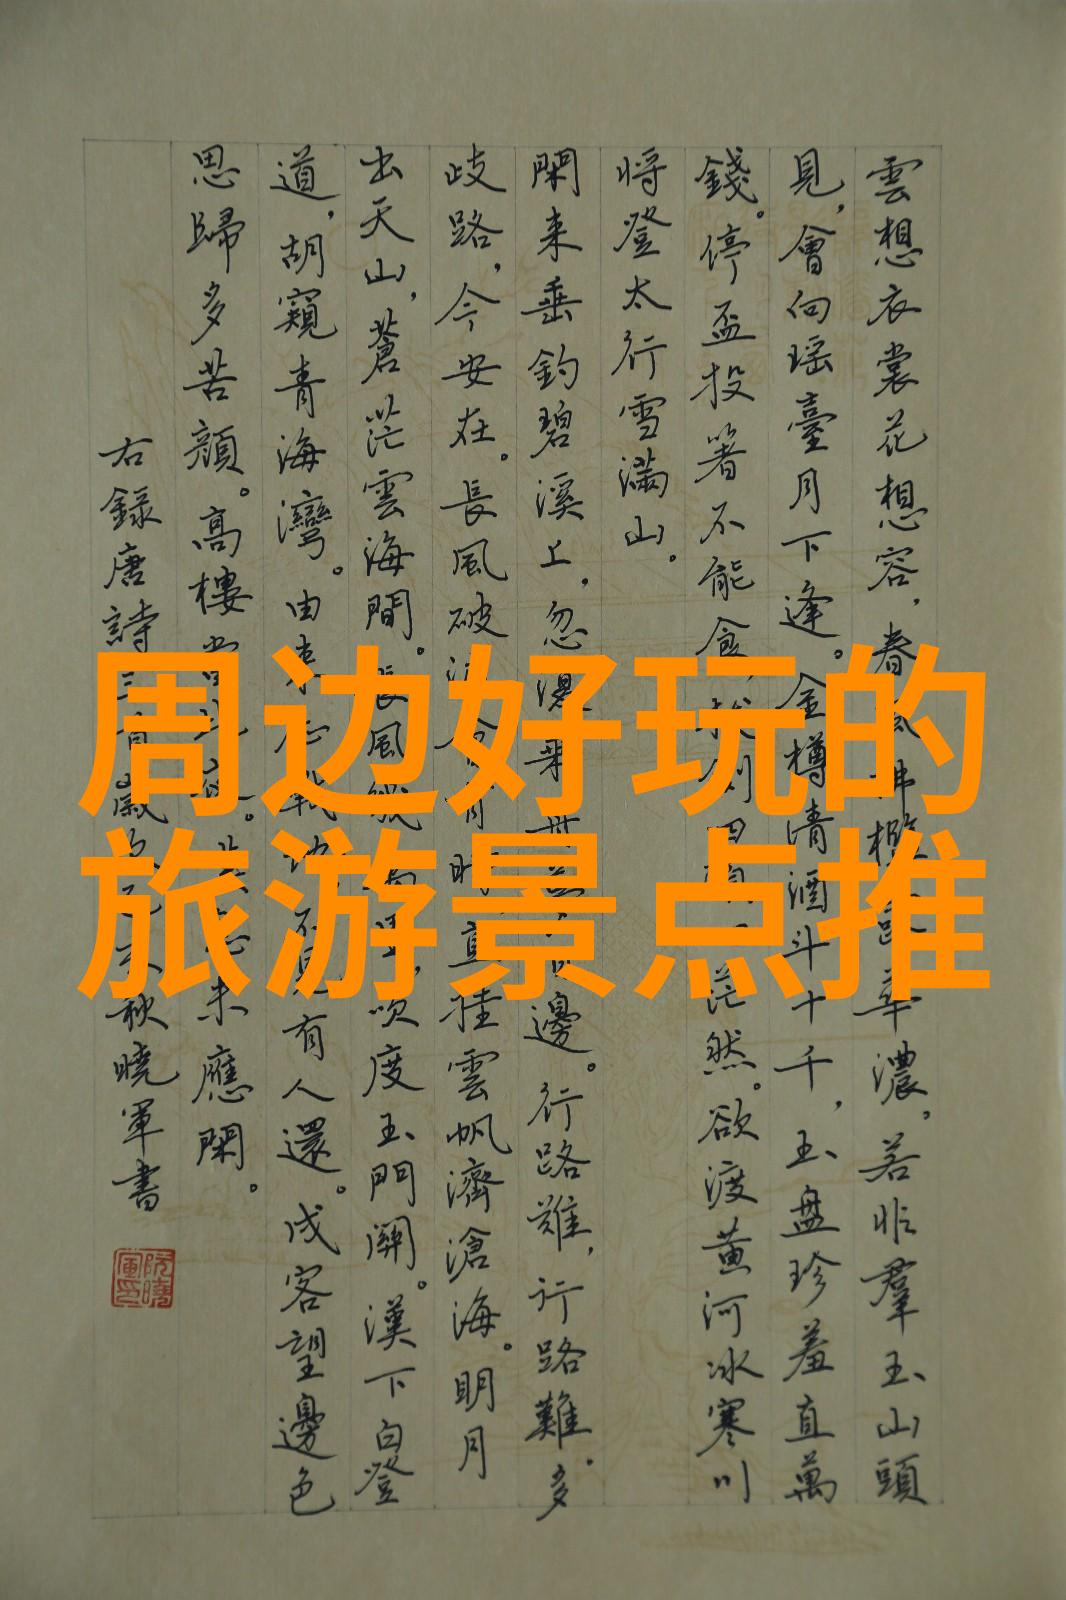 周边好玩的
旅游景点推
雲想衣裳花想容，春風拂檻露華濃。若非羣玉山頭
見，會向瑶臺月下逢。金樽清酒斗十千，玉盤珍羞直萬
錢。停盃投箸不能食 四 茫然。欲渡黄河冰寒川
将登太行雪滿山。
閑来垂釣碧溪上，忽復乗舟 邊。行路難，行路難。多
歧路，今安在。長風破浪 時，直挂雲帆濟滄海。明月
出天山，蒼茫雲海間。長風 吹度玉門關。漢下白登
道，胡窺青海灣。由 戰地 不見有人還。戍客望邊色
思歸多苦顔。高樓 未應閑。
右録唐詩三首歲 秋曉軍書
阮曉軍印